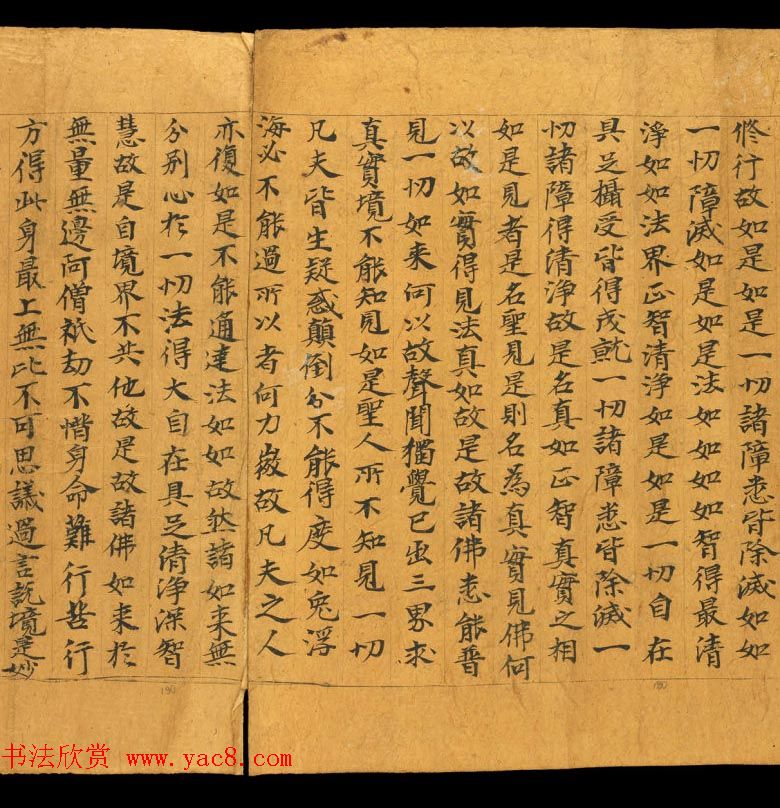 修行故如是如是一切諸障悉皆除滅如如
一切障滅如是如是法如如如如智得最清
淨如如法界正智清淨如是如是一切自在
具足攝受皆得成就一切諸障悉皆除滅一
切諸障得清淨故是名真如正智真實之相
如是見者是名聖見是則名為真實見佛何
以故如實得見法真如故是故諸佛悉能普
見一切如来何以故聲聞獨覺已出三界求
真實境不能知見如是聖人所不知見一切
凡夫皆生疑惑顛倒分不能得度如兔浮
海必不能過所以者何力微故凡夫之人
亦復如是不能通達法如如故然諸如来無
分别心於一切法得大自在具足清淨深智
慧故是自境界不共他故是故諸佛如来於
無量無邊阿僧祇劫不惜身命難行苦行
方得此身最上無比不可思議過言說境是妙
190
190
书法欣赏 www.yac8.com